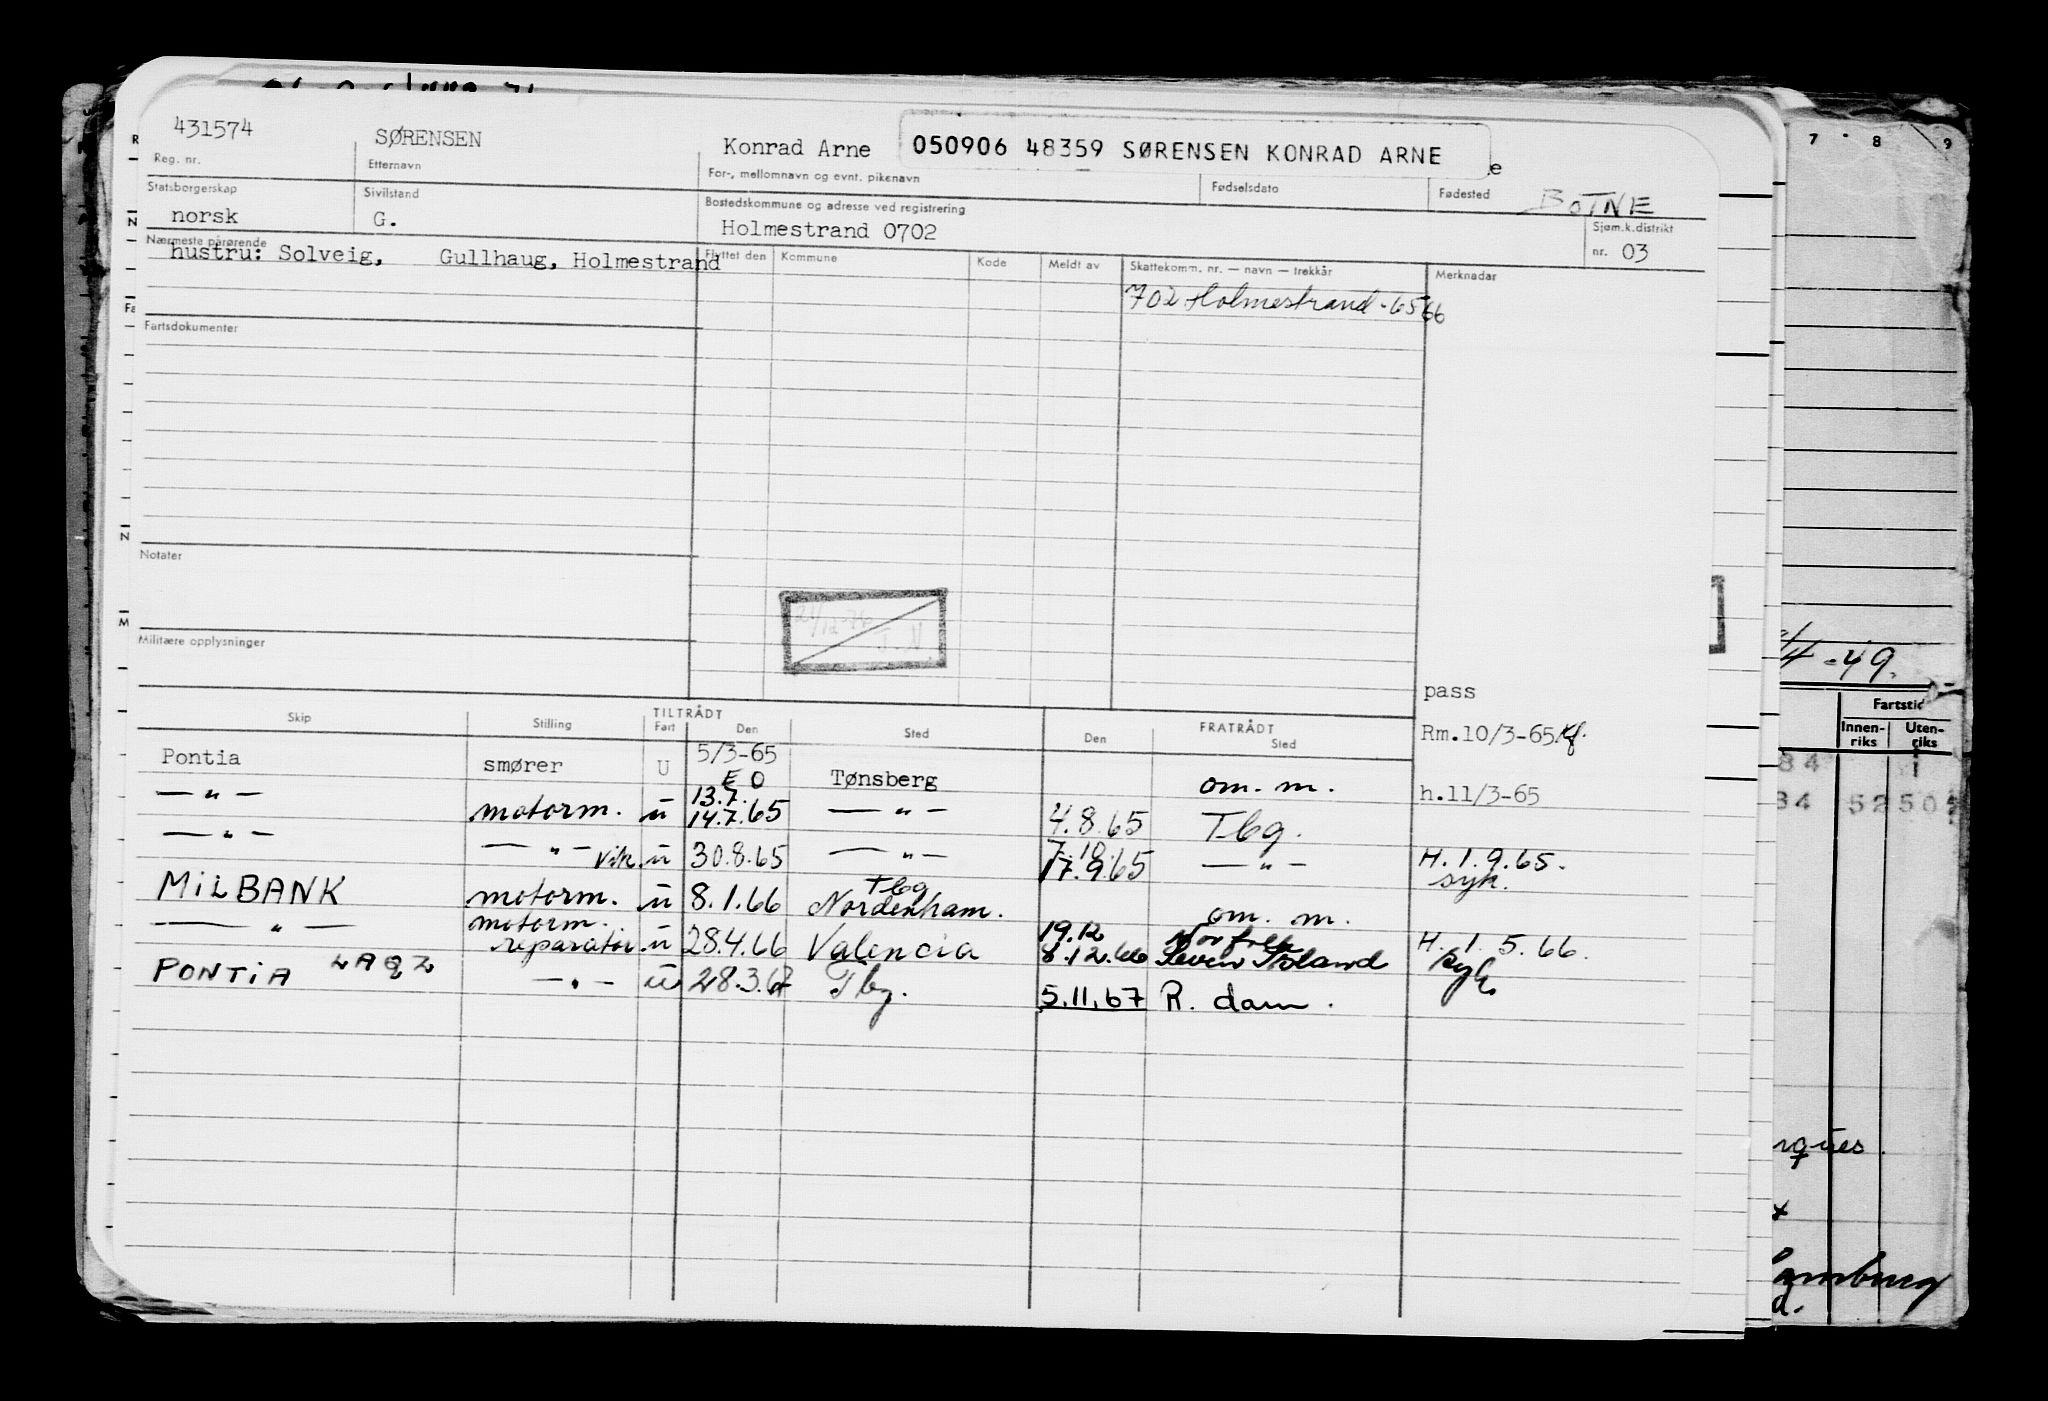 431574 SØRENSEN Konrad Arne 050906 48359 SØRENSEN KONRAD ARNE
Reg. nr. Etternavn For-, mellomnavn og evnt. pikenavn Fødselsdato Fødested BOTNE
Statsborgerskap Sivilstand Bostedskommune og adresse ved registrering
norsk G. Holmestrand 0702 Sjøm.k.distrikt
nr. 03
Nærmeste pårørende Flyttet den Kommune Kode Meldt av Skattekomm. nr. — navn — trekkår Merknader
hustru: Solveig, Gullhaug, Holmestrand
702 Holmestrand - 65 66
Fartsdokumenter
Notater
21/12-76
T.N.
Militære opplysninger
pass
Skip Stilling TILTRÅDT FRATRÅDT
Fart Den Sted Den Sted
Rm.10/3-65
Pontia smører U 5/3-65 Tønsberg om. m.
EO
h.11/3-65
— " — motorm. u 13.7. 14.7.65 — " — 4.8.65 Tbg.
— " — — " — Vik. u 30.8.65 — " — 7.10. 17.9.65 — " — H. 1.9.65. syk.
MILBANK motorm. u 8.1.66 Tbg Nordenham. om. m.
— " — motorm. reparatør u 28.4.66 Valencia 19.12 8.12.66 Norfolk Seven Island H. 1.5.66. syk.
PONTIA LAQZ — " — u 28.3.67 Tbg. 5.11.67 R. dam.
7 8 9
/4-49.
Fartstid
Innen-riks Uten-riks
84 1
84 52 50